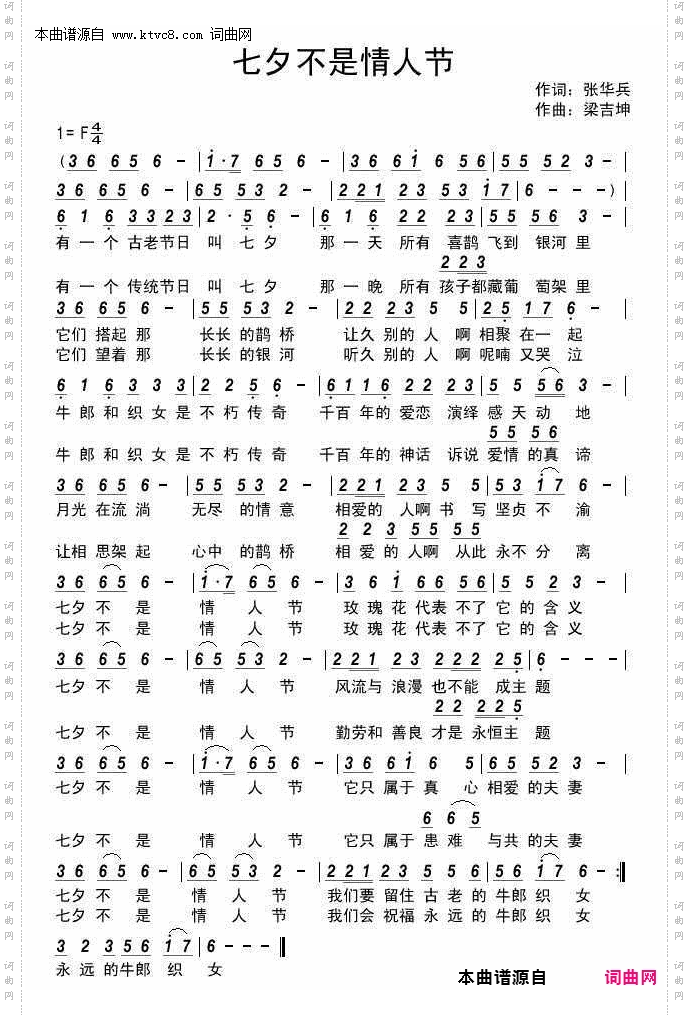 本曲谱源自 www.ktvc8.com 词曲网
七夕不是情人节
作词：张华兵
作曲：梁吉坤
1= F 4/4
(3 6 6 5 6 - | 1·7 6 5 6 - | 3 6 6 1 6 5 6 | 5 5 5 5 2 3 - |
3 6 6 5 6 - | 6 5 5 3 2 - | 2 2 1 2 3 5 3 1 7 | 6 - - - )|
6 1 6 3 3 2 3 | 2 · 5 6 - | 6 1 6 2 2 2 3 | 5 5 5 6 3 - |
有一个古老节日 叫 七夕 那一天 所有 喜鹊 飞到 银河里
2 2 3
有一个传统节日 叫 七夕 那一晚 所有 孩子都藏葡 萄架里
3 6 6 5 6 - | 5 5 5 3 2 - | 2 2 2 3 5 5 | 2 5 1 7 6 - |
它们 搭起那 长长 的鹊 桥 让久 别的 人 啊 相聚 在一 起
它们 望着那 长长 的银 河 听久 别的 人 啊 呢喃 又哭 泣
6 1 6 3 3 3 | 2 2 2 5 6 - | 6 1 1 6 2 2 2 3 | 5 5 5 6 3 - |
牛郎和织女是不朽传奇 千百年的爱恋 演绎 感天动 地
5 5 5 6
牛郎和织女是不朽传奇 千百年的神话 诉说 爱情的真 谛
3 6 6 5 6 - | 5 5 5 3 2 - | 2 2 1 2 3 5 5 | 5 5 3 1 7 6 - |
月光在流淌 无尽 的情意 相爱的 人啊 书 写 坚贞不 渝
2 2 2 3 5 5 5 5
让相思架起 心中 的鹊桥 相爱的人啊 从此永不分 离
3 6 6 5 6 - | 1·7 6 5 6 - | 3 6 1 6 6 5 6 | 5 5 5 2 3 - |
七夕 不 是 情 人 节 玫瑰花代表 不了 它的 含义
七夕 不 是 情 人 节 玫瑰花代表 不了 它的 含义
3 6 6 5 6 - | 6 5 5 3 2 - | 2 2 1 2 3 2 2 2 2 5 | 6 - - - |
七夕 不 是 情 人 节 风流与 浪漫也不能 成主 题
2 2 2 2 2 5
七夕 不 是 情 人 节 勤劳和 善良才是永恒主 题
3 6 6 5 6 - | 1·7 6 5 6 - | 3 6 6 1 6 5 | 6 5 5 2 3 - |
七夕 不 是 情 人 节 它只 属于 真 心 相爱的夫妻
6 6 5
七夕 不 是 情 人 节 它只 属于 患 难 与共的夫妻
3 6 6 5 6 - | 6 5 5 3 2 - | 2 2 1 2 3 5 5 5 | 5 6 1 7 6 - :|
七夕 不 是 情 人 节 我们要 留住 古老 的 牛郎 织 女
七夕 不 是 情 人 节 我们会 祝福 永远 的 牛郎 织 女
3 2 3 5 6 1 7 | 6 - - - |
永 远 的牛郎 织 女
本曲谱源自 词曲网